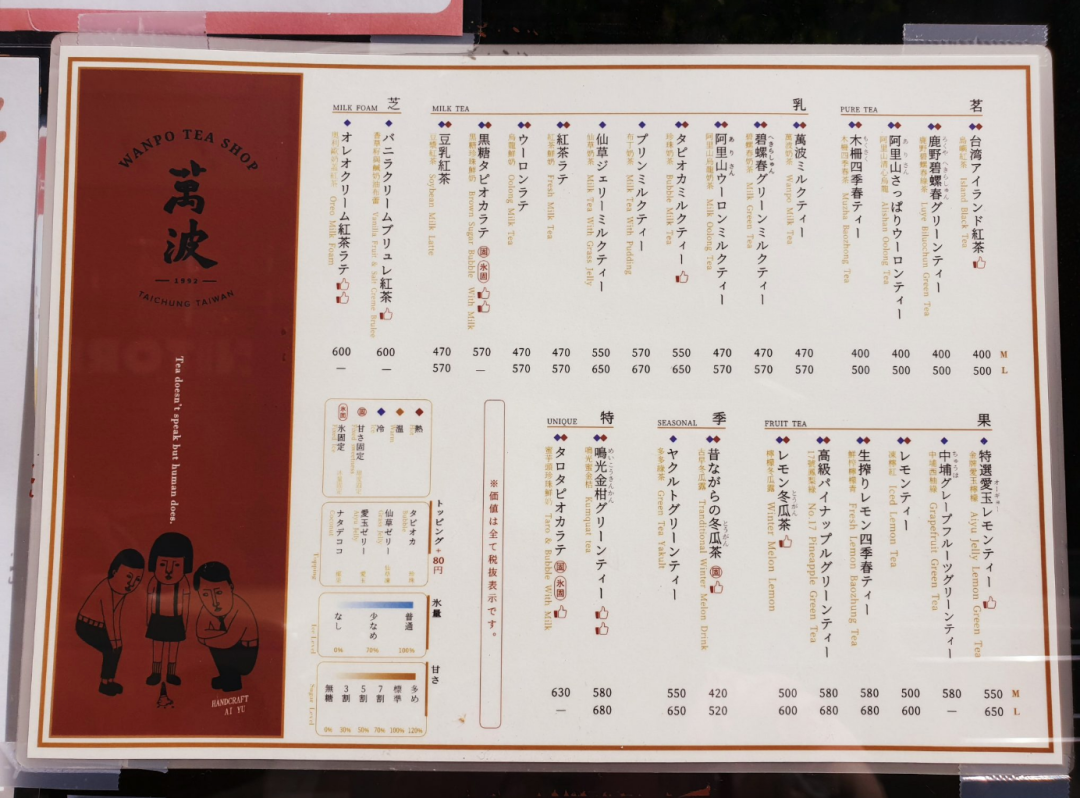 WANPO TEA SHOP
萬波
1992
TAICHUNG TAIWAN
Tea doesn't speak but human does.
HANDCRAFT
AI YU
茗
PURE TEA
台湾アイランド紅茶
Island Black Tea
400
500
鹿野碧螺春グリーンティー
Luye Biluochun Green Tea
400
500
阿里山さっぱりウーロンティー
Alishan Oolong Tea
400
500
木柵四季春ティー
Muzha Baozhong Tea
400
500
M
L
乳
MILK TEA
萬波ミルクティー
Wanpo Milk Tea
470
570
碧螺春グリーンミルクティー
へきらしゅん
Milk Green Tea
470
570
阿里山ウーロンミルクティー
ありさん
Milk Oolong Tea
470
570
タピオカミルクティー
Bubble Milk Tea
550
650
プリンミルクティー
Milk Tea With Pudding
570
670
仙草ジェリーミルクティー
Milk Tea With Grass Jelly
550
650
紅茶ラテ
Fresh Milk Tea
470
570
ウーロンラテ
Oolong Milk Tea
470
570
黒糖タピオカラテ 固 氷固
Brown Sugar Bubble With Milk
570
—
豆乳紅茶
Soybean Milk Latte
470
570
芝
MILK FOAM
バニラクリームブリュレ紅茶
Vanilla Fruit & Salt Creme Brulee
600
—
オレオクリーム紅茶ラテ
Oreo Milk Foam
600
—
果
FRUIT TEA
特選愛玉レモンティー
オーギョー
Aiyu Jelly Lemon Green Tea
550
650
中埔グレープフルーツグリーンティー
ちゅうほ
Grapefruit Green Tea
580
—
レモンティー
Iced Lemon Tea
500
600
生搾りレモン四季春ティー
Fresh Lemon Baozhung Tea
580
680
高級パイナップルグリーンティー
No.17 Pineapple Green Tea
580
680
レモン冬瓜茶
とうがん
Winter Melon Lemon
500
600
M
L
季
SEASONAL
昔ながらの冬瓜茶 固
とうがん
Tranditional Winter Melon Drink
420
520
ヤクルトグリーンティー
Green Tea Yakult
550
650
特
UNIQUE
鳴光金柑グリーンティー
めいこうきんかん
Kumquat tea
580
680
タロタピオカラテ 固 氷固
Taro & Bubble With Milk
630
—
※価値は全て税抜表示です。
熱
温
冷
固 甘さ固定
氷固 氷固定
トッピング+80円
タピオカ
仙草ゼリー
愛玉ゼリー
ナタデココ
Topping
氷量
普通
少なめ
なし
100%
70%
0%
Ice Level
甘さ
多め
標準
7割
5割
3割
無糖
120%
100%
70%
50%
30%
0%
Sugar Level